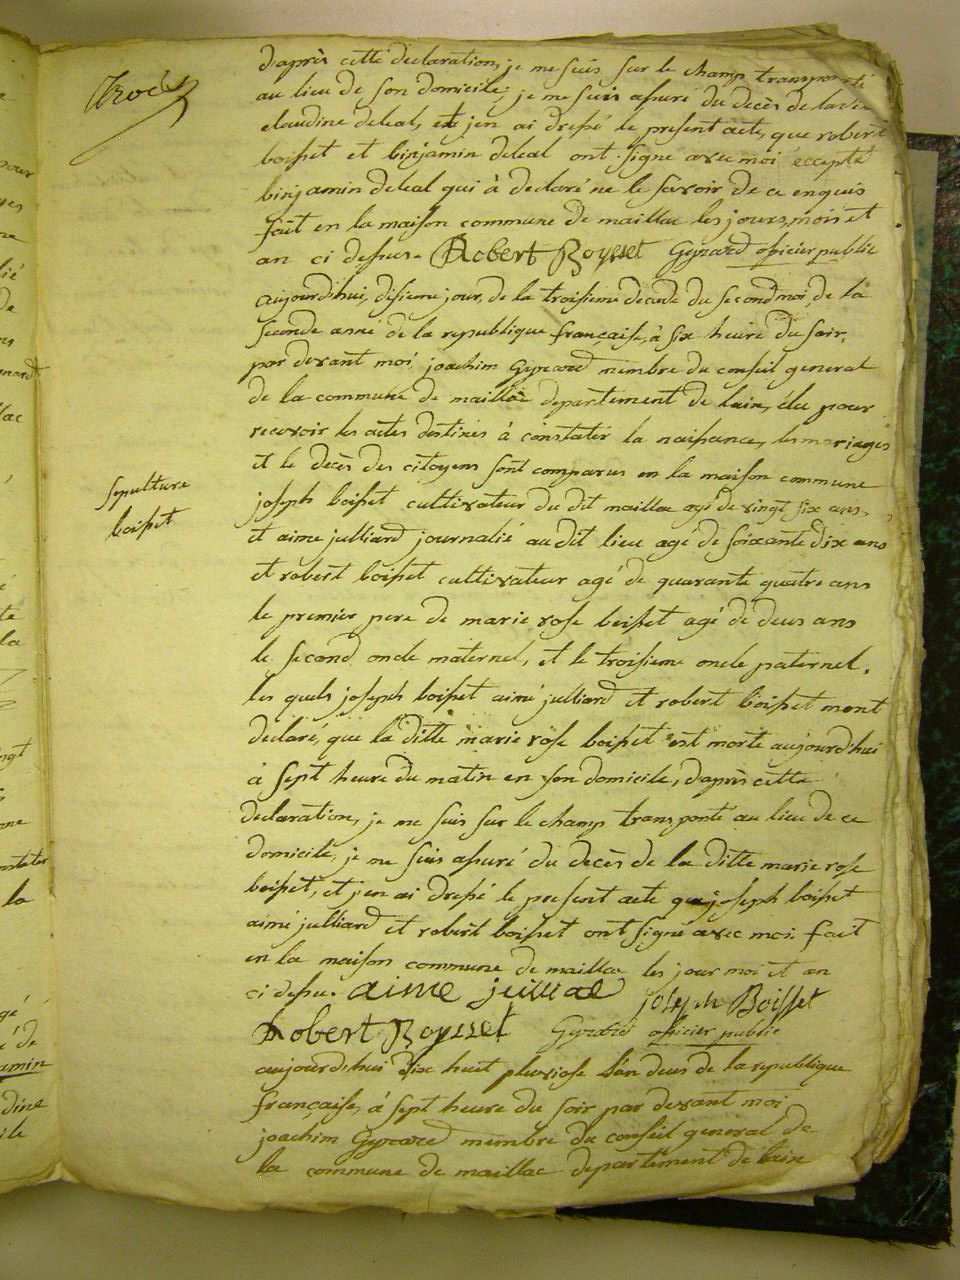 d'après cette declaration, je me suis sur le champ transporté
au lieu de son domicile, je me suis assuré du decès de
claudine deleal, et j'en ai dressé le present acte, que robert
boisset et binjamin deleal ont signé avec moi éccepté
binjamin deleal qui à declaré ne le savoir de ce enquis
fait en la maison commune de maillac les jours, mois et
an ci dessus. Robert Boysset Gyrard officier public
aujourd'hui, disieme jour, de la troisieme decade du second moi, de la
seconde anné de la republique française, à six heure du soir,
par devant moi, joachim Gyrard membre du conseil general
de la commune de maillac departement de lain, élu pour
recevoir les actes destinés à constater la naissance, les mariages
et le decès des citoyens sont comparus en la maison commune
sepulture
boisset
joseph boisset cultivateur du dit maillac agé de vingt six ans,
et aime julliard journalié audit lieu agé de soixante dix ans
et robert boisset cultivateur agé de quarante quatre ans
le premier pere de marie rose boisset agé de deus ans
le second oncle maternel, et le troisieme oncle paternel,
les quels joseph boisset aimé julliard et robert boisset mont
declaré, que la ditte marie rose boisset est morte aujourd'hui
à sept heure du matin en son domicile, daprès cette
declaration, je me suis sur le champ transporté au lieu de ce
domicile, je me suis assuré du decès de la ditte marie rose
boisset, et j'en ai dressé le present acte que joseph boisset
aimé julliard et robert boisset ont signé avec moi fait
en la maison commune de maillac les jour moi et an
ci dessu. aime julliae joseph Boisset
Robert Boysset Gyrard officier public
aujourd'hui dix huit pluviose l'an deus de la republique
française, à sept heure du soir par devant moi
joachim Gyrard membre du conseil general de
la commune de maillac departement de lain